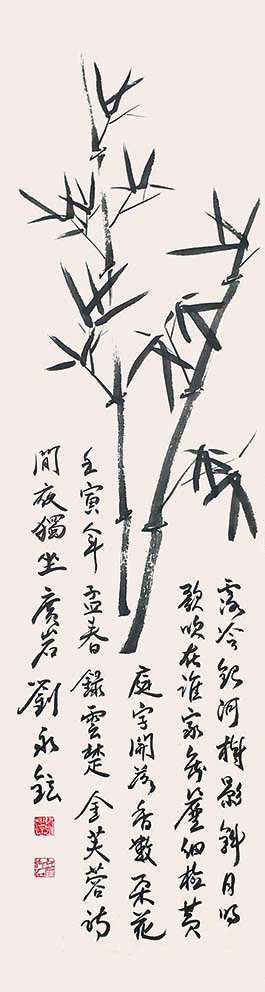 露冷銀河樹影斜月明
歌吹在誰家無塵細檢黃
庭字開落香數朵花
壬寅年孟春錄雲楚金芙蓉詩
閒夜獨坐廣岩劉永鉉